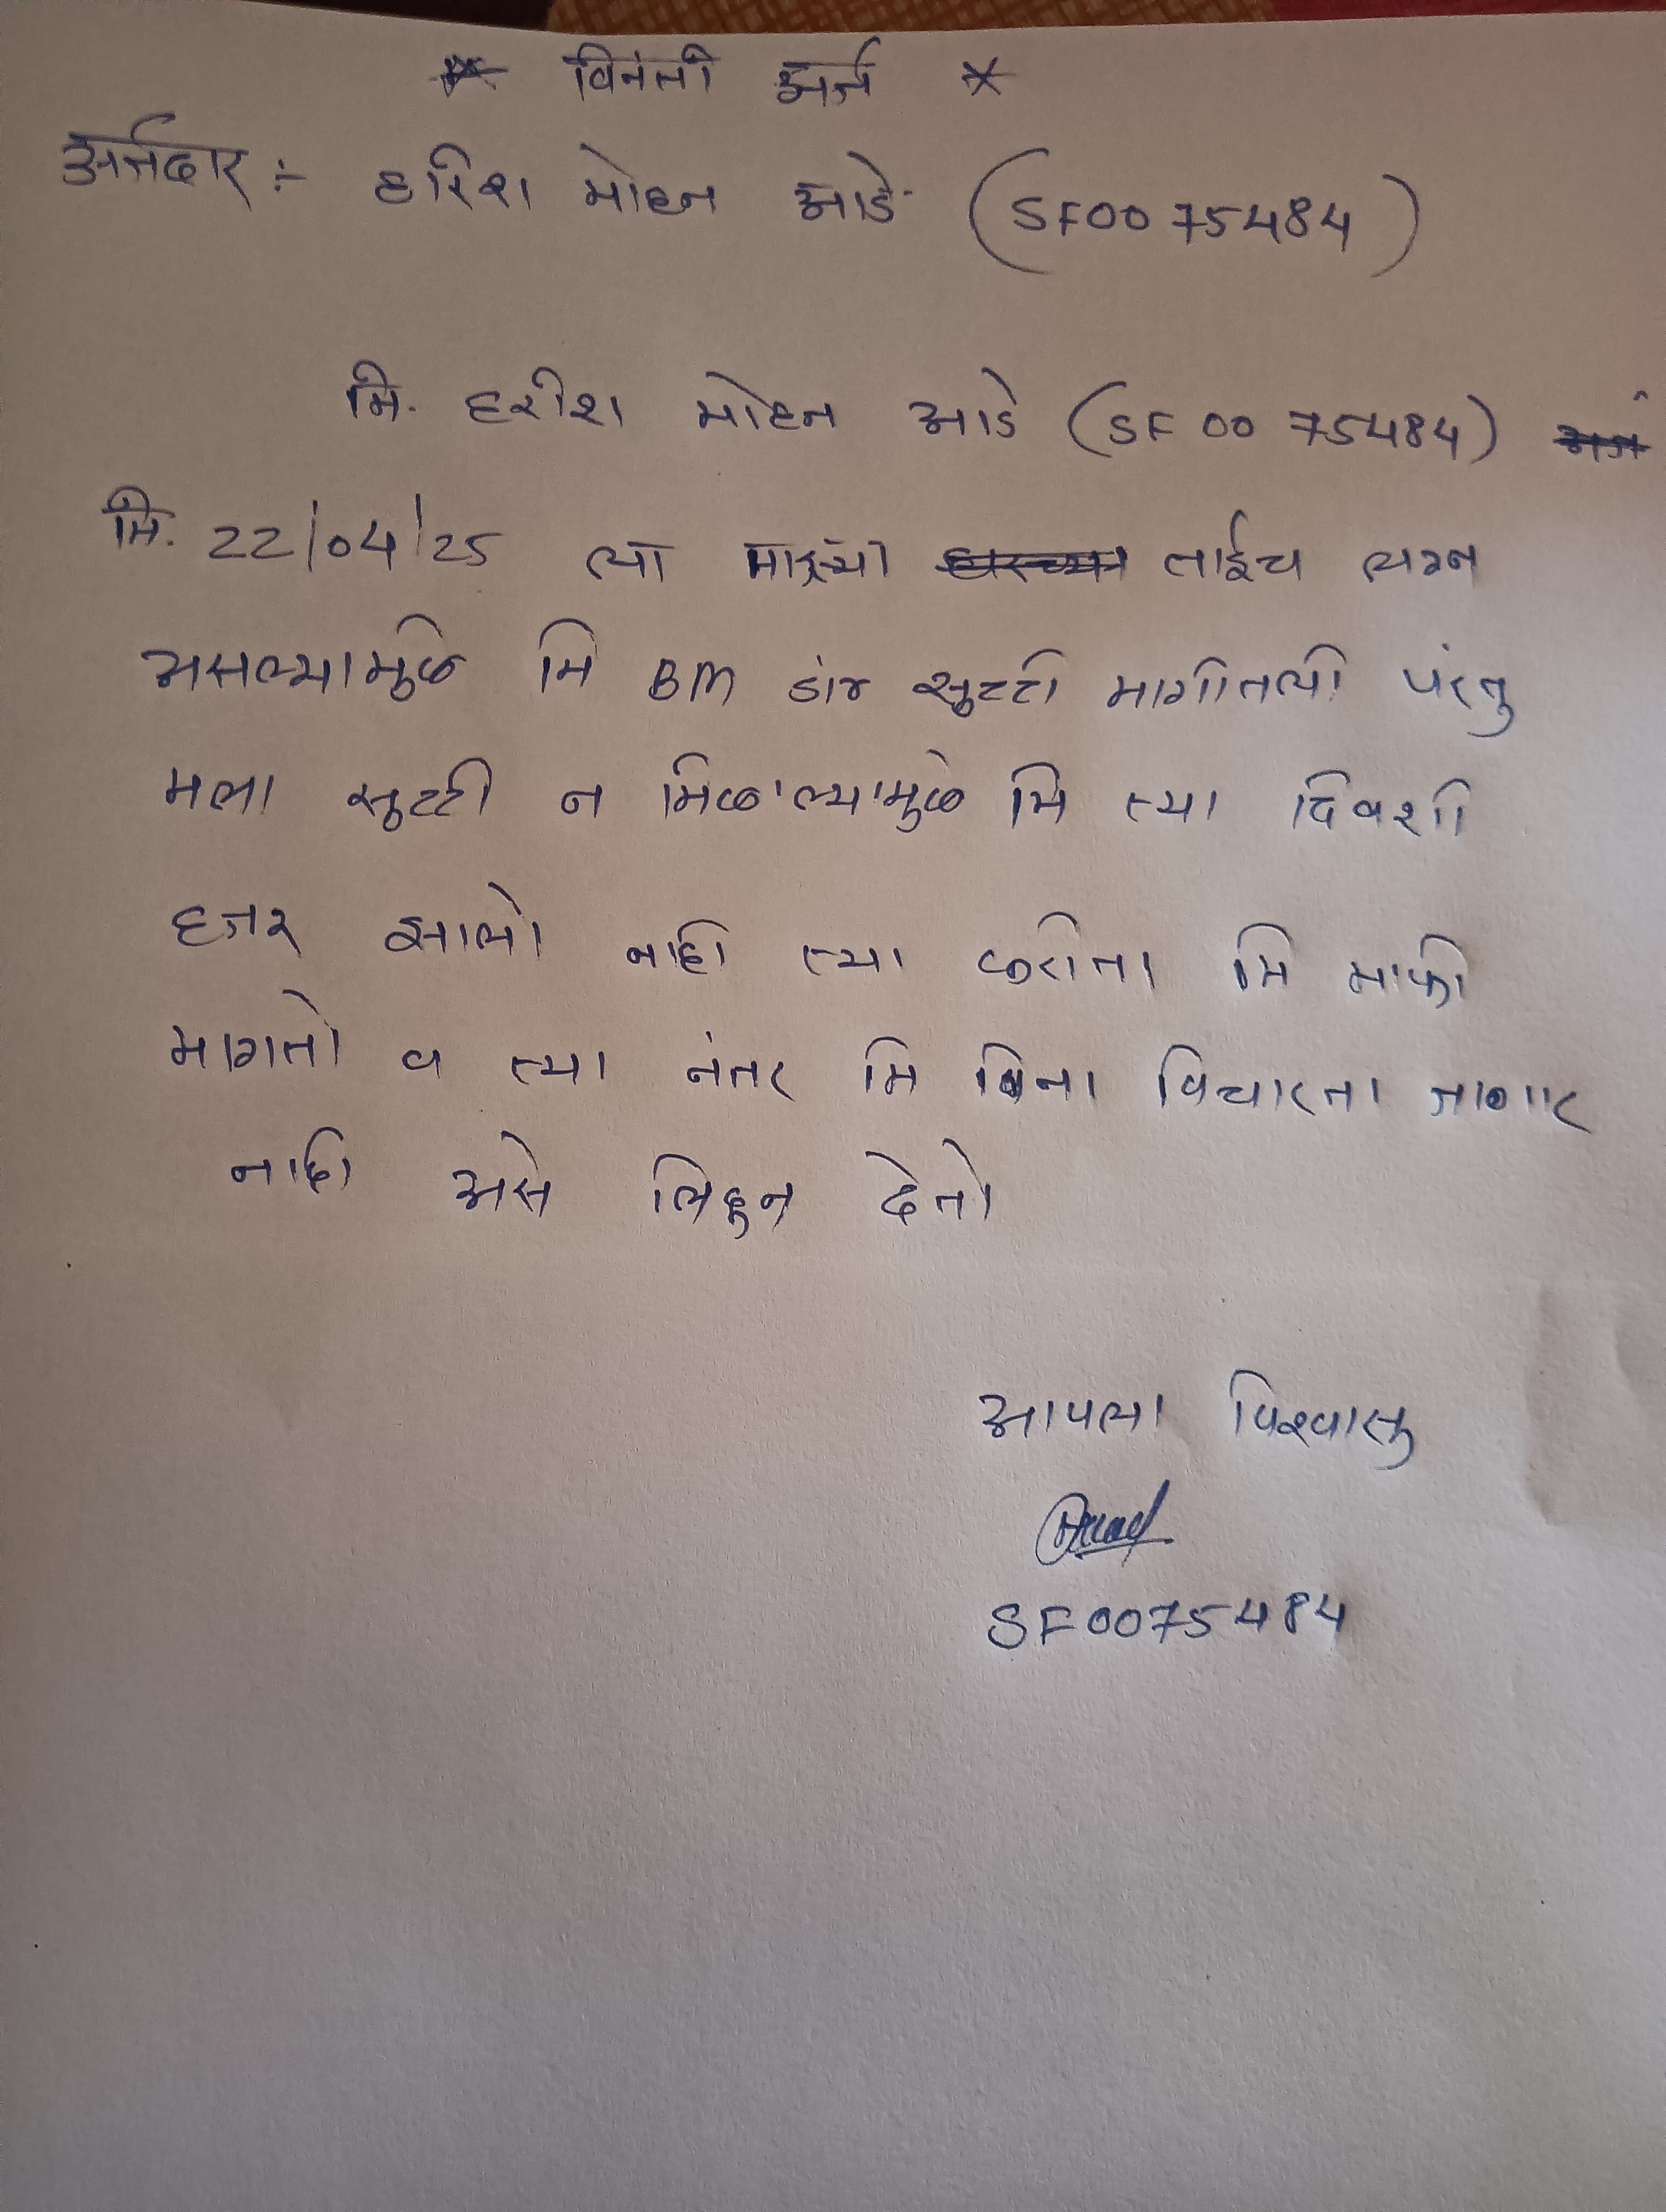 * विनंती अर्ज *
अर्जदार :- हरिश मोहन आडे (SF0075484)
मि. हरीश मोहन आडे (SF0075484)
मि. 22/04/25 ला माझ्या ताईच लग्न
असल्यामुळे मि BM सुट्टी मागीतली परंतु
मला सुट्टी न मिळाल्यामुळे मि त्या दिवशी
हजर झालो नाही त्या करीता मि माफी
मागतो व त्या नंतर मि बिना विचारता जाणार
नाही असे लिहून देतो
आपला विश्वासु
SF0075484